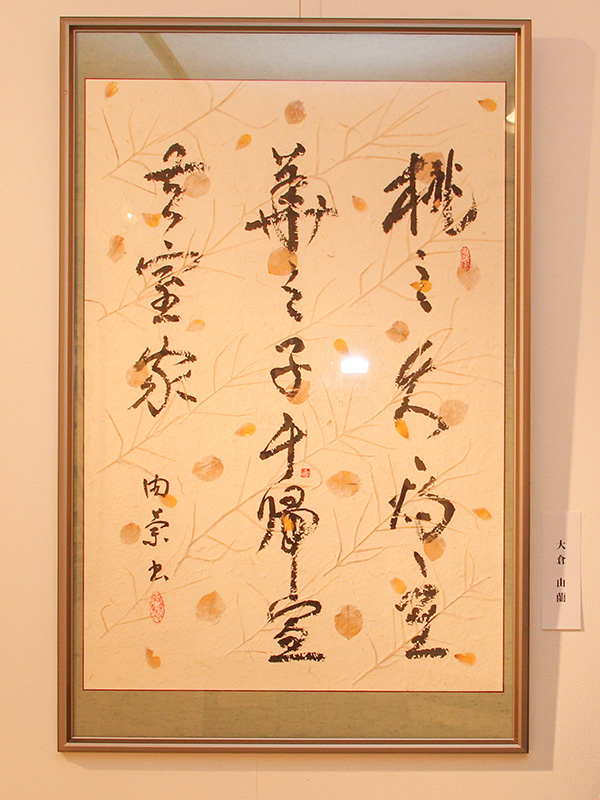 桃之夭々灼々其
華之子于歸宜
其室家
由蘭書
大倉 由蘭